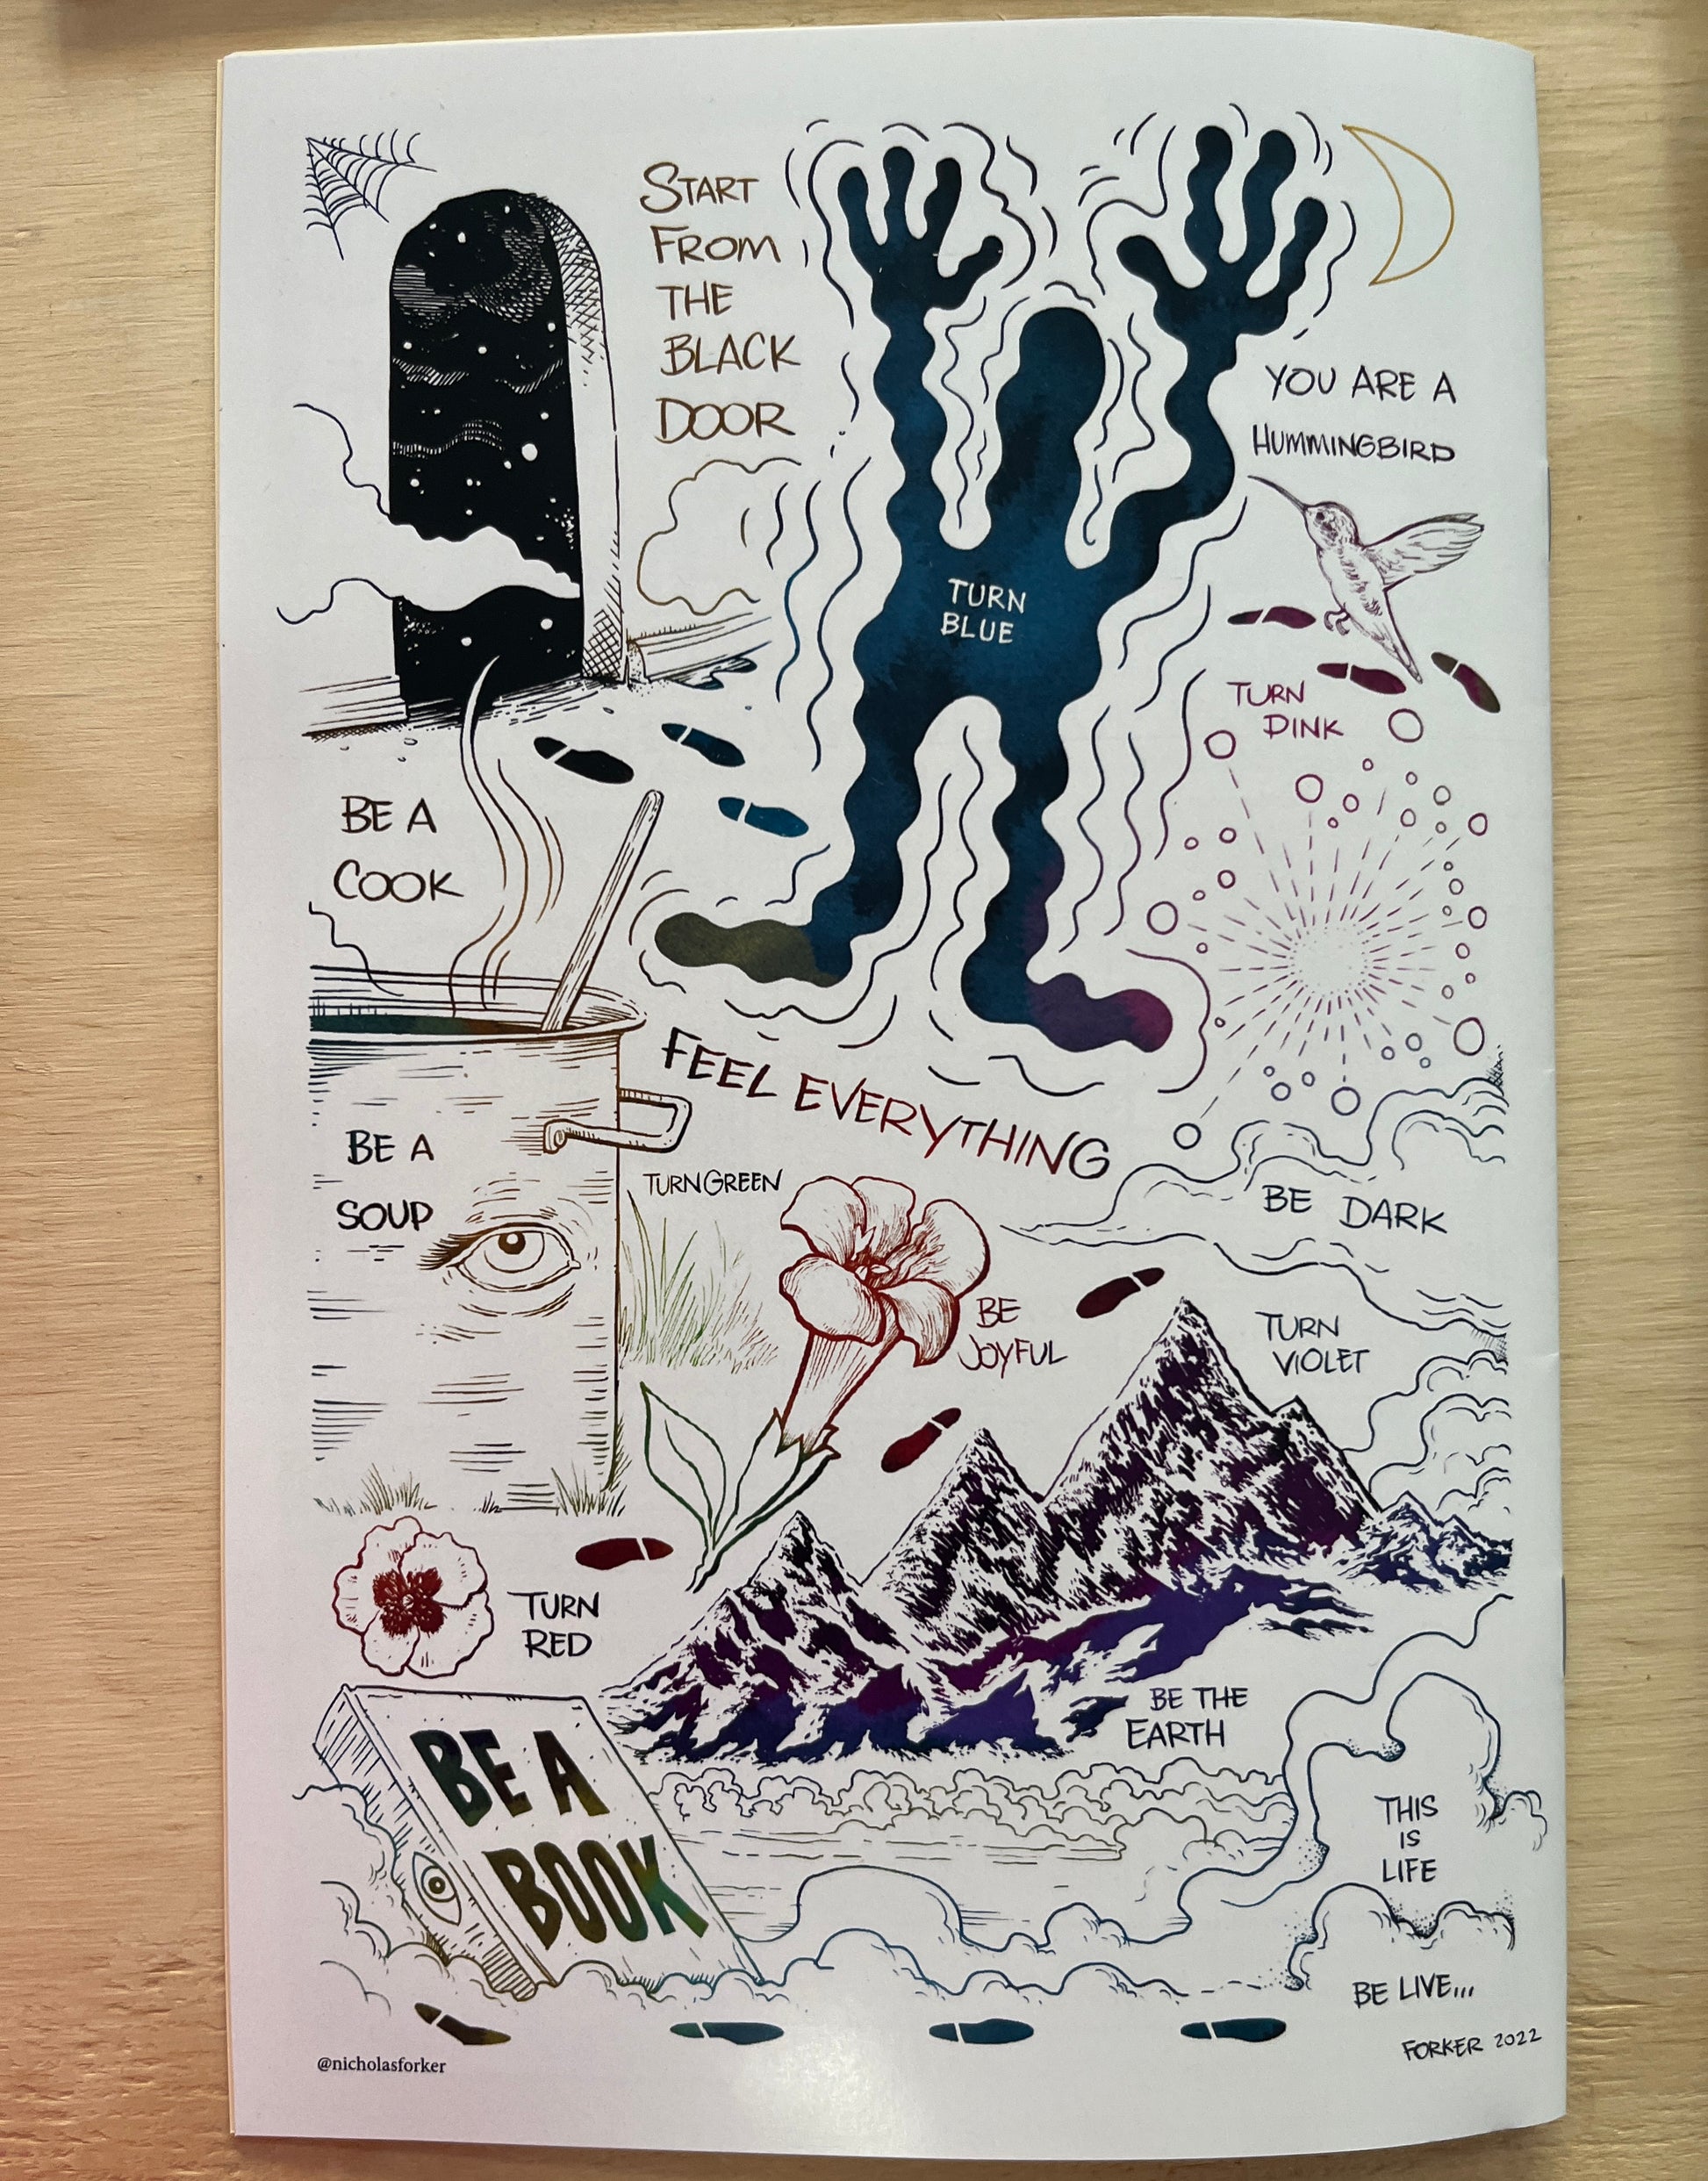 START
FROM
THE
BLACK
DOOR
TURN
BLUE
YOU ARE A
HUMMINGBIRD
TURN
PINK
BE A
COOK
FEEL EVERYTHING
BE A
SOUP
TURN GREEN
BE
JOYFUL
BE DARK
TURN
VIOLET
TURN
RED
BE THE
EARTH
BE A
BOOK
THIS
IS
LIFE
BE LIVE...
FORKER 2022
@nicholasforker